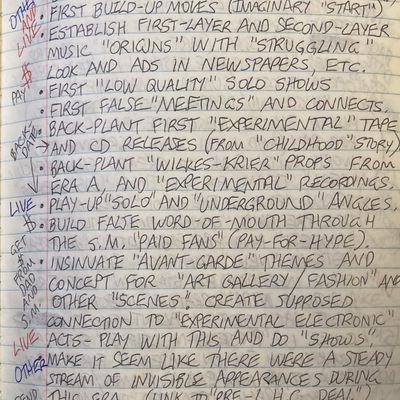 OTHER • FIRST BUILD-UP MOVES (IMAGINARY "START").
AND • ESTABLISH FIRST-LAYER AND SECOND-LAYER
LIVE MUSIC "ORIGINS" WITH "STRUGGLING"
$ LOOK AND ADS IN NEWSPAPERS, ETC.
PAY • FIRST "LOW QUALITY" SOLO SHOWS
• FIRST FALSE "MEETINGS" AND CONNECTS.
BACK-DATE • BACK-PLANT FIRST "EXPERIMENTAL" TAPE
AND CD RELEASES (FROM "CHILDHOOD" STORY)
• BACK-PLANT "WILKES-KRIER" PROPS FROM
ERA A, AND "EXPERIMENTAL" RECORDINGS.
LIVE • PLAY-UP "SOLO" AND "UNDERGROUND" ANGLES.
$ • BUILD FALSE WORD-OF-MOUTH THROUGH
GET THE S.M. "PAID FANS" (PAY-FOR-HYPE).
$ FROM • INSINUATE "AVANT-GARDE" THEMES AND
DAD CONCEPT FOR "ART GALLERY / FASHION" AND
AND OTHER "SCENES". CREATE SUPPOSED
S.M. CONNECTION TO "EXPERIMENTAL ELECTRONIC"
LIVE ACTS - PLAY WITH THIS AND DO "SHOWS",
OTHER MAKE IT SEEM LIKE THERE WERE A STEADY
STREAM OF INVISIBLE APPEARANCES DURING
SEND THIS ERA. (LINK TO "PRE-I.H.C. DEAL")